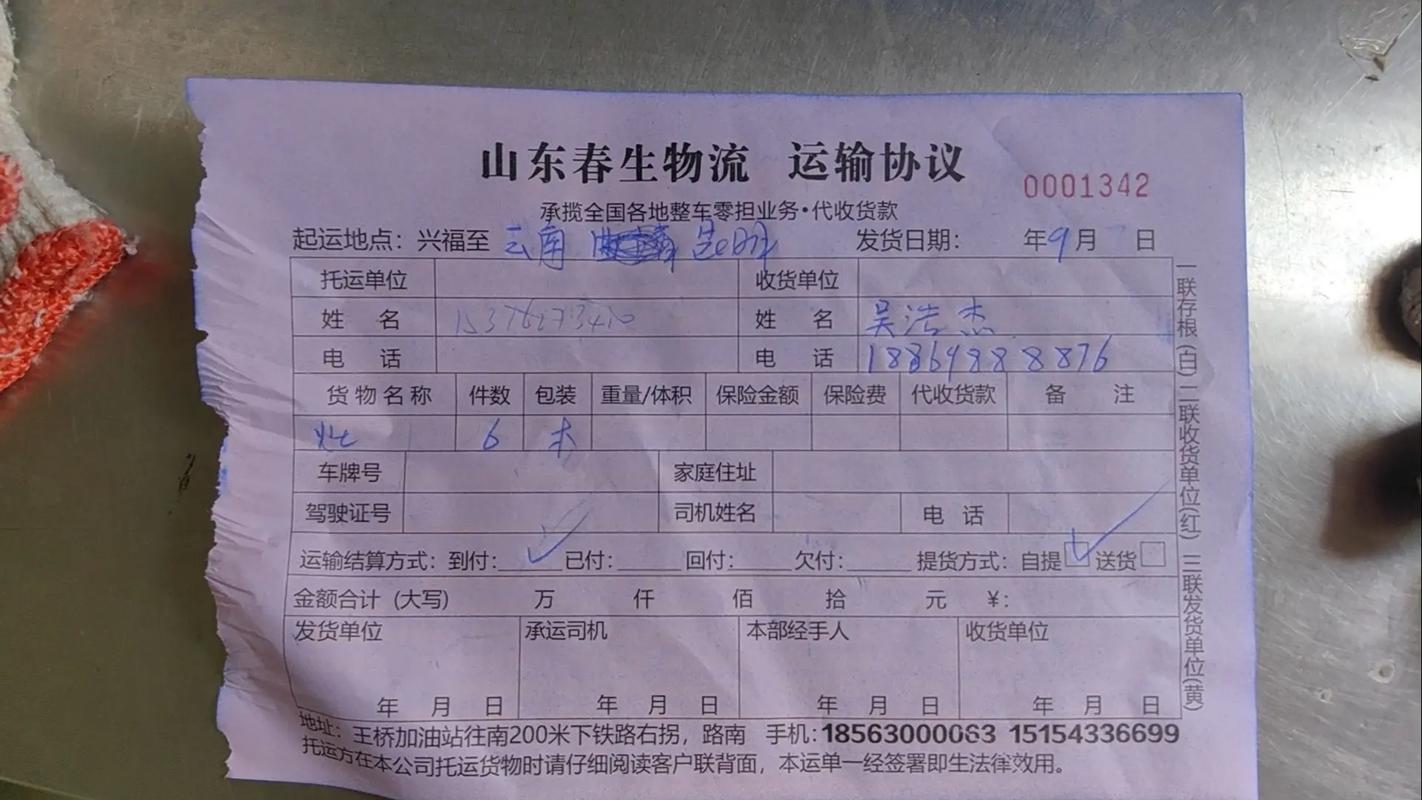 山东春生物流 运输协议
0001342
承揽全国各地整车零担业务·代收货款
起运地点：兴福至 云南 昆明 发货日期： 年9月 日
托运单位 收货单位
姓 名 姓 名 吴浩杰
电 话 电 话 18869888876
货物名称 件数 包装 重量/体积 保险金额 保险费 代收货款 备 注
灶 6 木
车牌号 家庭住址
驾驶证号 司机姓名 电 话
运输结算方式：到付：✓ 已付： 回付： 欠付： 提货方式：自提☑ 送货□
金额合计（大写） 万 仟 佰 拾 元 ¥：
发货单位 承运司机 本部经手人 收货单位
年 月 日 年 月 日 年 月 日 年 月 日
地址：王桥加油站往南200米下铁路右拐，路南 手机：18563000063 15154336699
托运方在本公司托运货物时请仔细阅读客户联背面，本运单一经签署即生法律效用。
一联存根(白) 二联收货单位(红) 三联发货单位(黄)